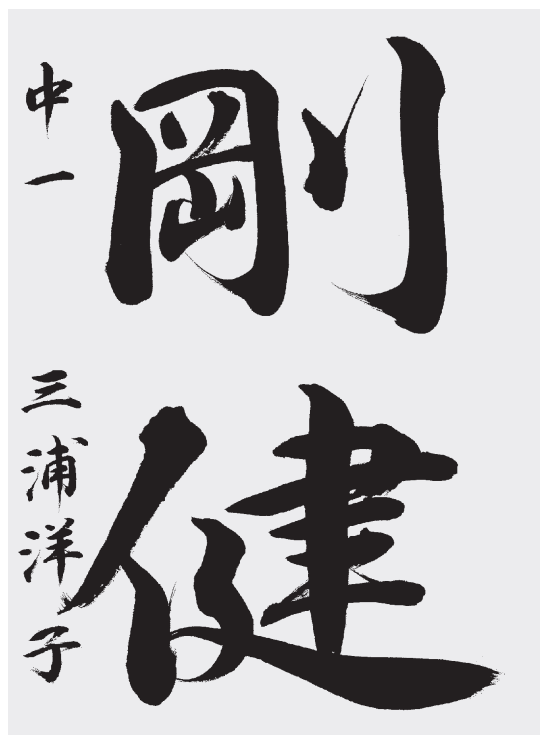 剛健
中一 三浦洋子